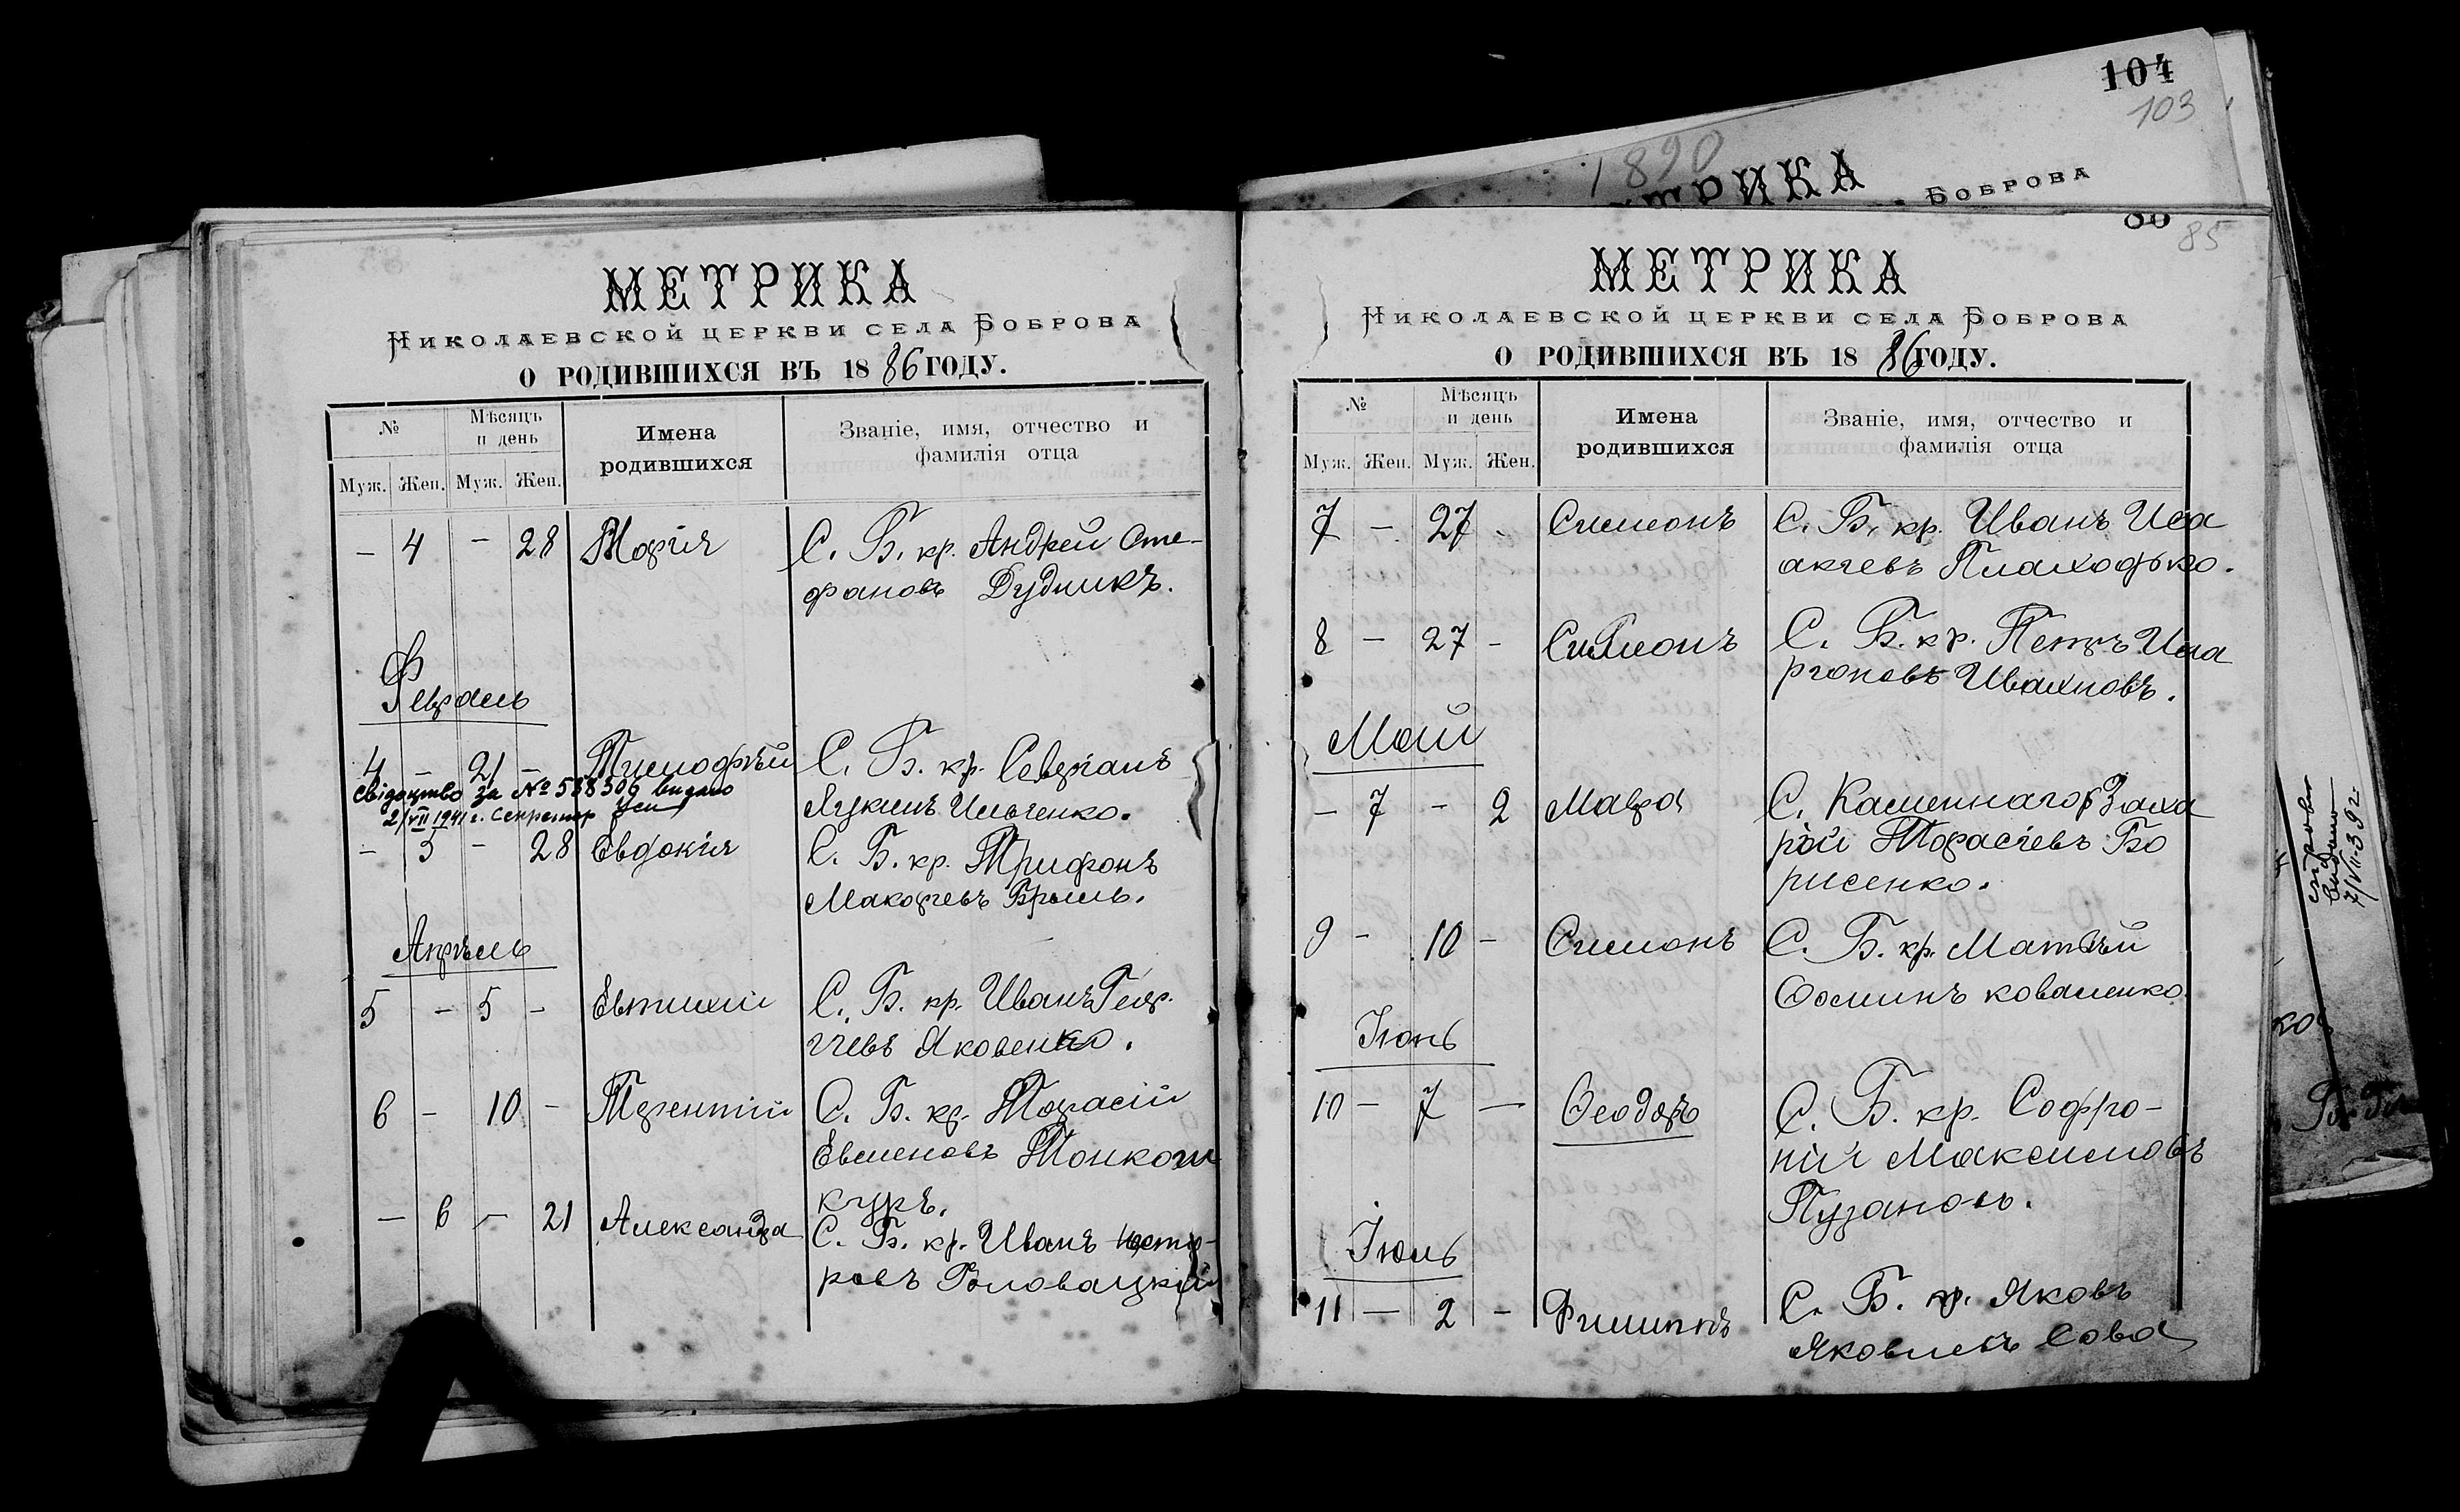 104
103
1890
МЕТРИКА
БОБРОВА
МЕТРИКА
НИКОЛАЕВСКОЙ ЦЕРКВИ СЕЛА БОБРОВА
О РОДИВШИХСЯ ВЪ 1886 ГОДУ.
№
Мѣсяцъ
и день
Имена
родившихся
Званіе, имя, отчество и
фамилія отца
Муж. Жен. Муж. Жен.
– 4 – 28 Марія С. Б. кр. Андрей Сте-
фановъ Дудникъ.
Февраль
4 – 21 – Тимофѣй С. Б. кр. Севиріанъ
Свідоцтво за № 588506 видано
Лукинъ Ильченко.
2/VII 1941 г. Секретар
– 5 – 28 Евдокія С. Б. кр. Трифонъ
Макаріевъ Брыль.
Апрѣль
5 – 5 – Евтихій С. Б. кр. Иванъ Геор-
гіевъ Яковенко.
6 – 10 – Терентій С. Б. кр. Тарасій
Евменовъ Тонкош
куръ.
– 6 – 21 Александра С. Б. кр. Иванъ Несто-
ровъ Головацкій
85
МЕТРИКА
НИКОЛАЕВСКОЙ ЦЕРКВИ СЕЛА БОБРОВА
О РОДИВШИХСЯ ВЪ 1886 ГОДУ.
№
Мѣсяцъ
и день
Имена
родившихся
Званіе, имя, отчество и
фамилія отца
Муж. Жен. Муж. Жен.
7 – 27 – Симеонъ С. Б. кр. Иванъ Иса
акіевъ Плаходько.
8 – 27 – Симеонъ С. Б. кр. Петръ Ила
ріоновъ Ивахновъ.
Май
– 7 – 2 Мавра С. Каменнаго Заха
рій Тарасіевъ Бо
рисенко.
9 – 10 – Симонъ С. Б. кр. Матѳѣй
Ѳоминъ коваленко.
Іюнь
10 – 7 – Ѳеодоръ С. Б. кр. Софро-
ній Максимовъ
Пузановъ.
Іюль
11 – 2 – Филиппъ С. Б. кр. Яковъ
Яковлевъ Сова
видано
7/VII-392